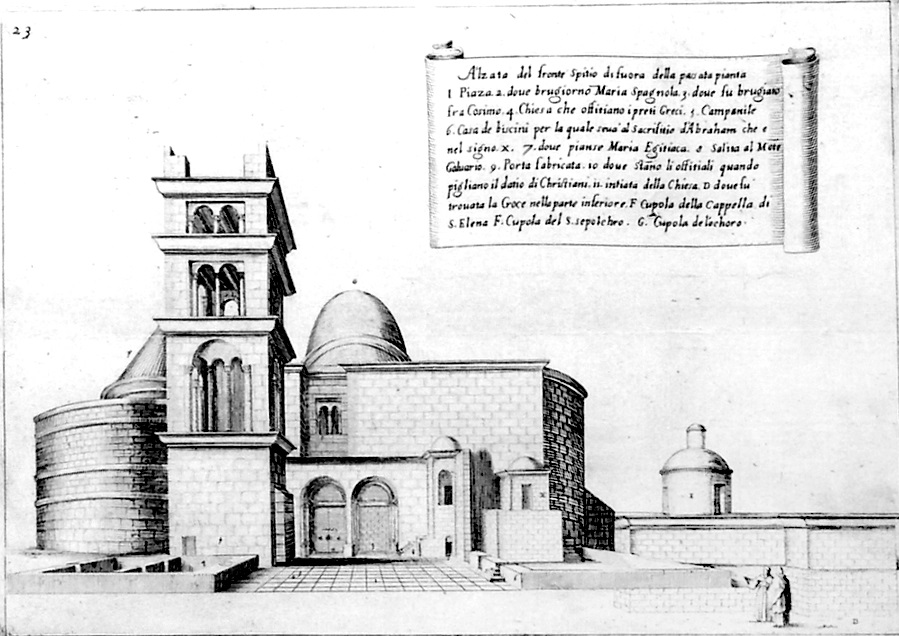 23
Alzata del fronte Spitio di fuora della passata pianta
1 Piaza. 2. doue brugiorno Maria Spagnola. 3. doue fu brugiato
fra Cosimo. 4. Chiesa che offitiano i preti Greci. 5. Campanile
6. Casa de biscini per la quale seua al Sacrifitio d'Abraham che e
nel signo. X. 7. doue pianse Maria Egitiaca. 8 Salita al Mote
Caluario. 9. Porta fabricata. 10 doue stano li offitiali quando
pigliano il datio di Christiani. 11. intiata della Chiesa. D doue fu
trouata la Croce nella parte inferiore. F Cupola della Cappella di
S. Elena F. Cupola del S. sepolchro. G. Cupola